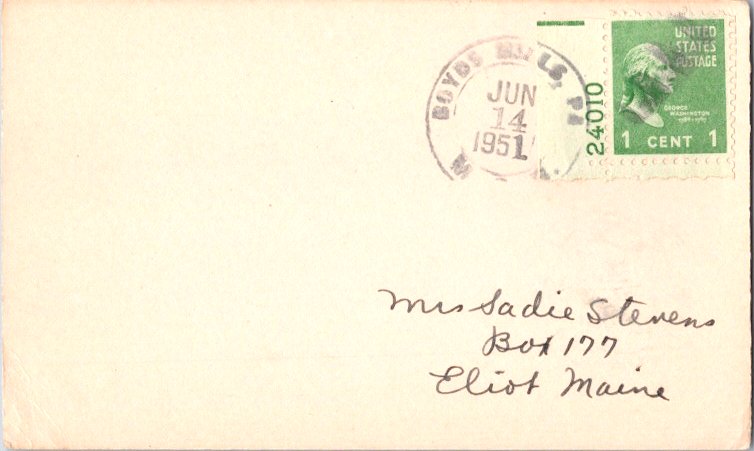 BOYDS MILLS, PA
JUN
14
1951
24010
UNITED
STATES
POSTAGE
GEORGE
WASHINGTON
1789-1797
1 CENT 1
Mrs Sadie Stevens
Box 177
Eliot Maine